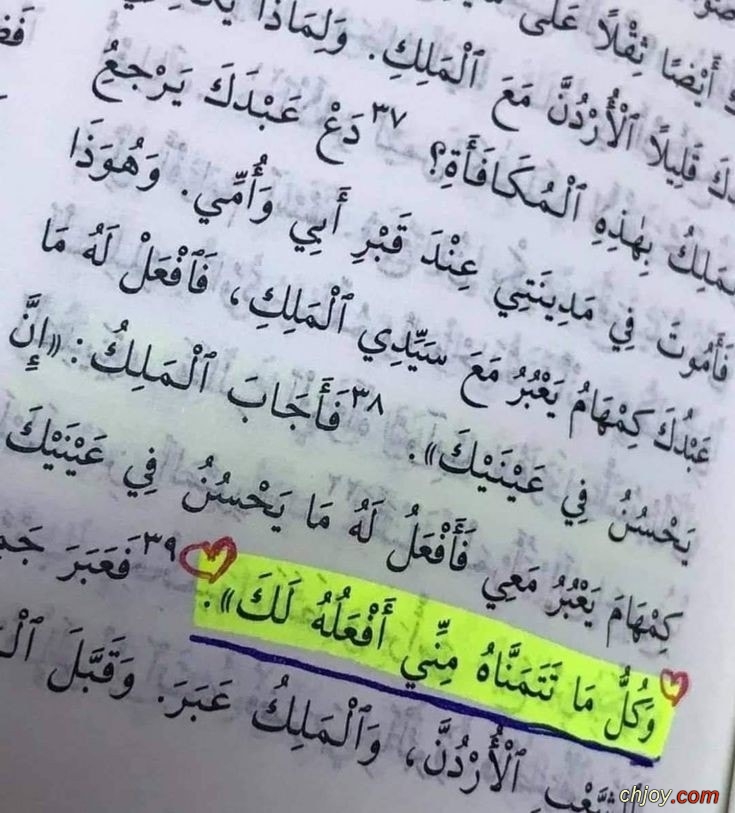 أَيْضًا ثِقْلًا عَلَى
قَلِيلًا ٱلْأُرْدُنَّ مَعَ ٱلْمَلِكِ. وَلِمَاذَا
بِهٰذِهِ ٱلْمُكَافَأَةِ؟ ٣٧ دَعْ عَبْدَكَ يَرْجِعُ
فَأَمُوتَ فِي مَدِينَتِي عِنْدَ قَبْرِ أَبِي وَأُمِّي. وَهُوَذَا
عَبْدُكَ كِمْهَامُ يَعْبُرُ مَعَ سَيِّدِي ٱلْمَلِكِ، فَٱفْعَلْ لَهُ مَا
يَحْسُنُ فِي عَيْنَيْكَ». ٣٨ فَأَجَابَ ٱلْمَلِكُ: «إِنَّ
كِمْهَامَ يَعْبُرُ مَعِي فَأَفْعَلُ لَهُ مَا يَحْسُنُ فِي عَيْنَيْكَ
وَكُلُّ مَا تَتَمَنَّاهُ مِنِّي أَفْعَلُهُ لَكَ». ٣٩ فَعَبَرَ
ٱلشَّعْبِ ٱلْأُرْدُنَّ، وَٱلْمَلِكُ عَبَرَ. وَقَبَّلَ
chjoy.com